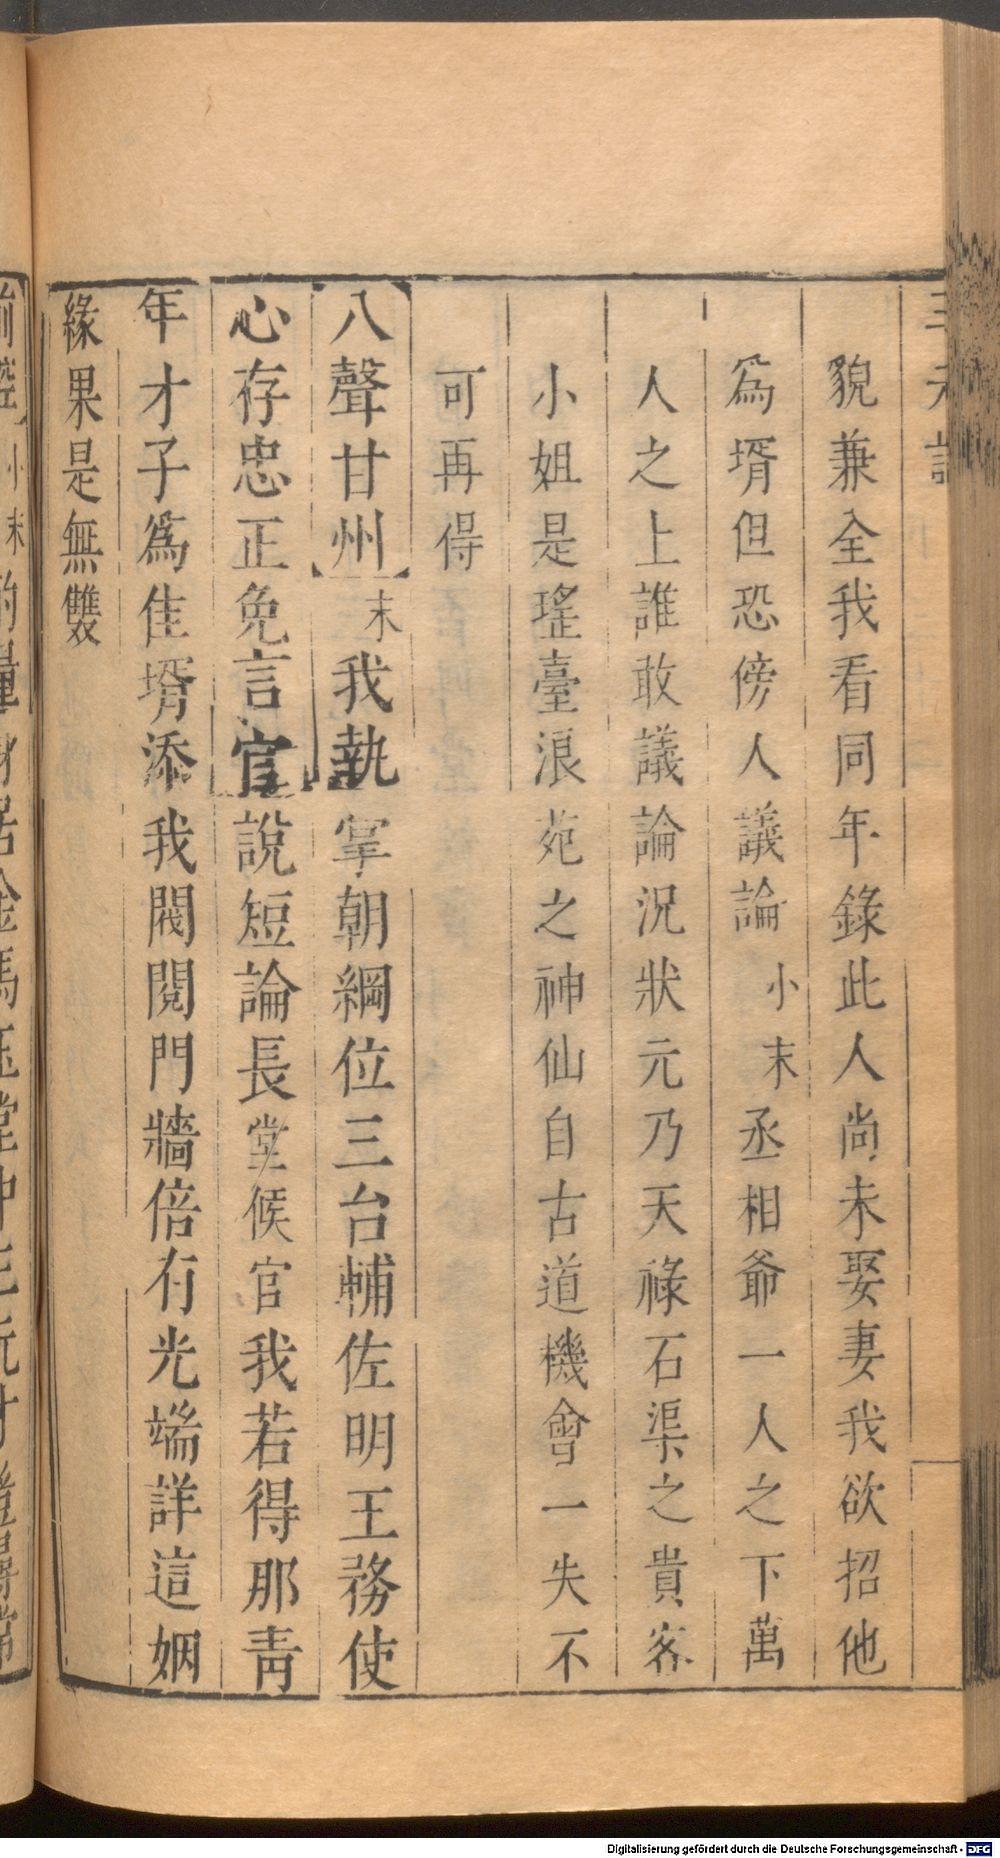 三元記
貌兼全我看同年錄此人尚未娶妻我欲招他
爲壻但恐傍人議論小末丞相爺一人之下萬
人之上誰敢議論況狀元乃天祿石渠之貴客
小姐是瑤臺浪苑之神仙自古道機會一失不
可再得
八聲甘州末我執掌朝綱位三台輔佐明王務使
心存忠正免言官說短論長堂候官我若得那青
年才子爲佳壻添我閥閱門牆倍有光端詳這姻
緣果是無雙
Digitalisierung gefördert durch die Deutsche Forschungsgemeinschaft - DFG